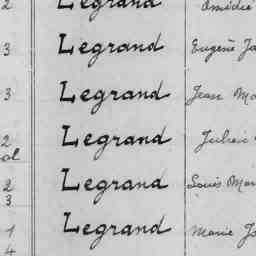 2 Legrand Amédée
3 Legrand Eugène
3 Legrand Jean
2 Legrand Julien
al
2 Legrand Louis
3
1 Legrand Marie
4